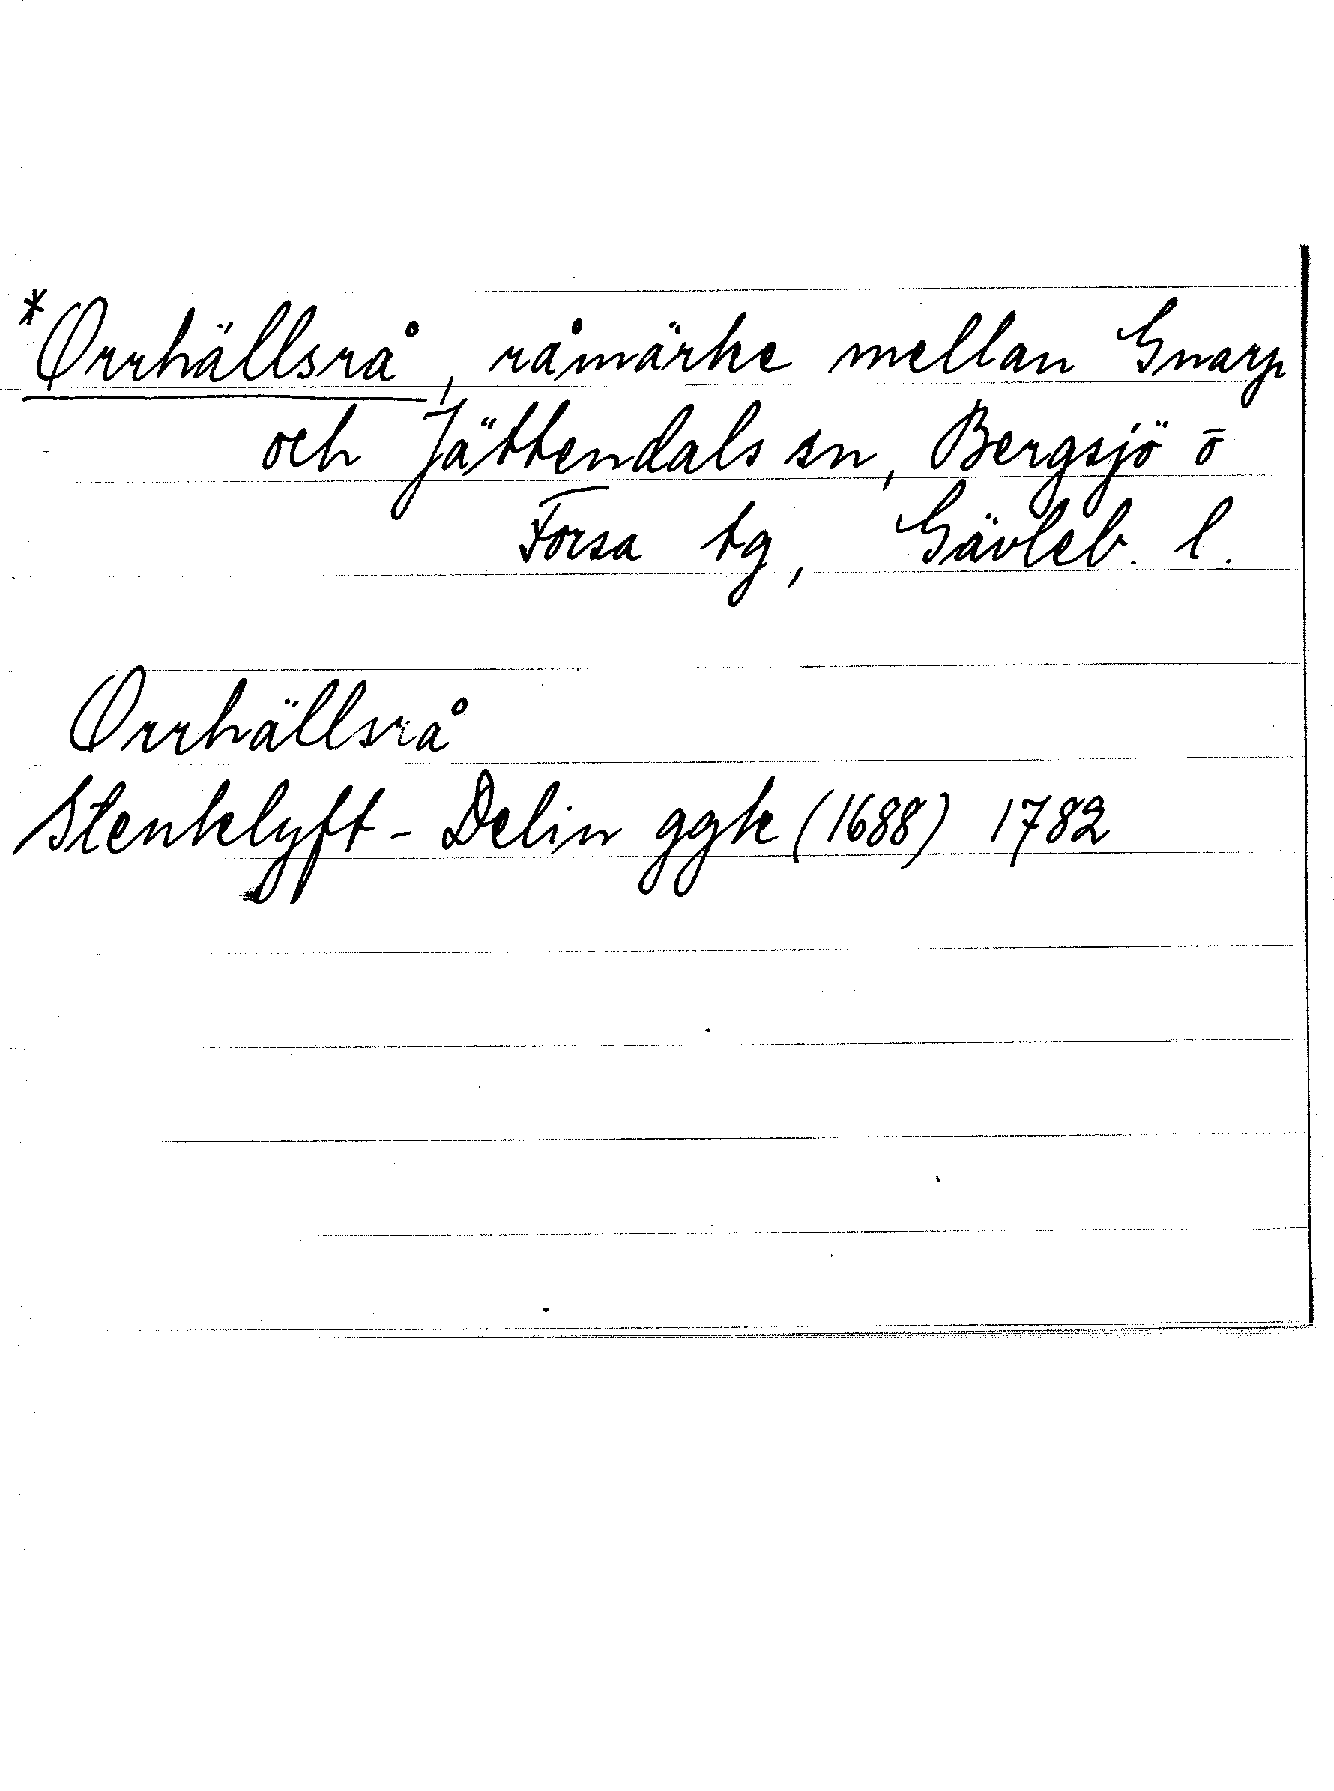 *Orrhällsrå, råmärke mellan Gnarp
och Jättendals sn, Bergsjö o
Forsa tg, Gävleb. l.
Orrhällsrå
Stenklyft - Delin ggk (1688) 1782